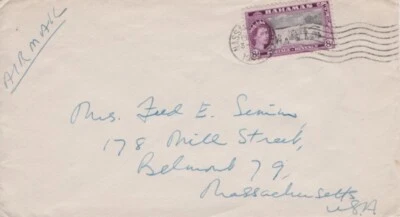 AIR MAIL
BAHAMAS
NASSAU
Mrs. Fred E.
178 Mill Street,
Belmont 79,
Massachusetts
USA